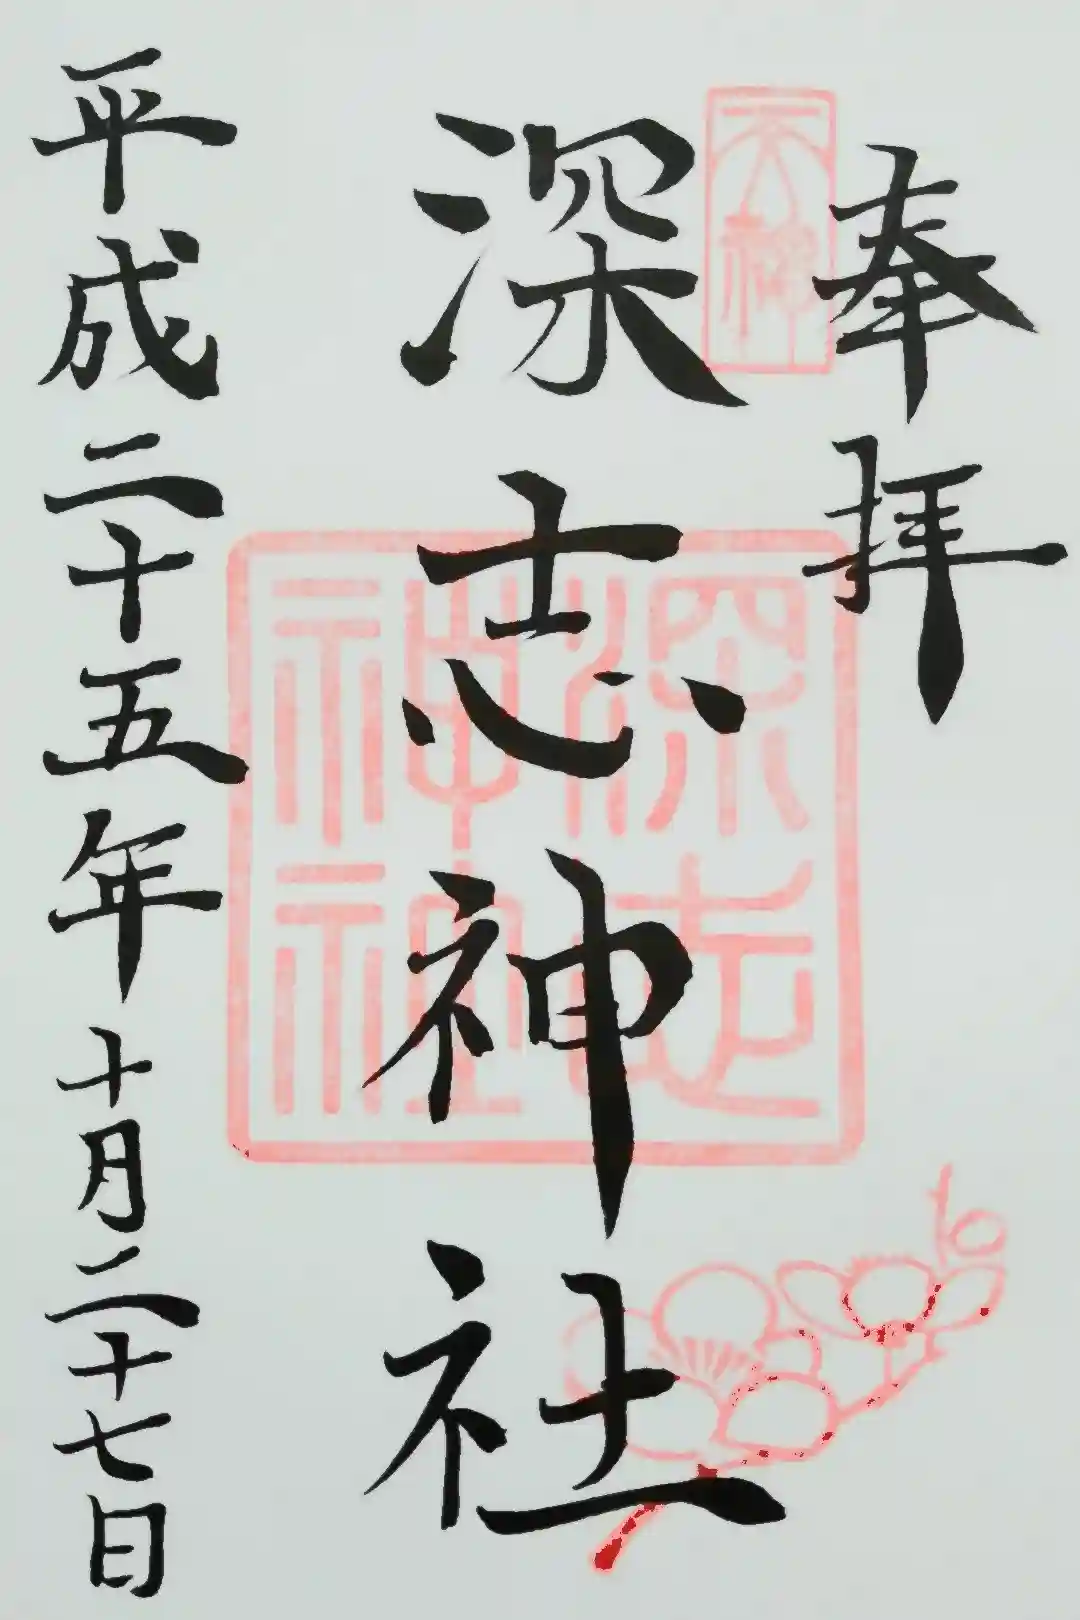 奉拝
天神
深志神社
深志
神社
平成二十五年十月二十七日